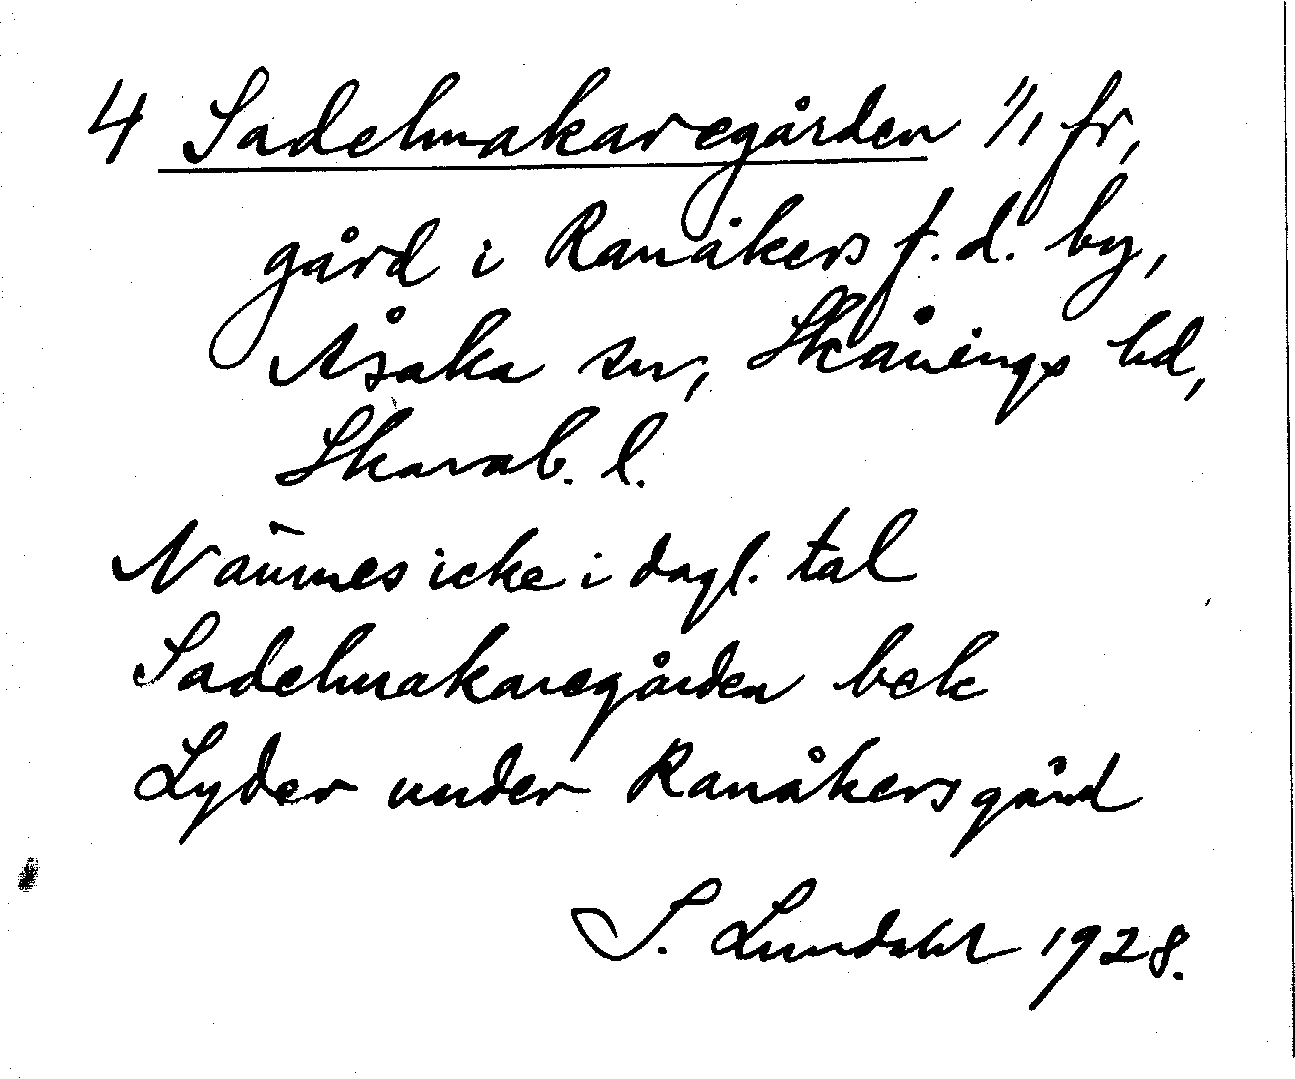 4 Sadelmakaregården 1/1 fr,
gård i Ranåkers f.d. by,
Åsaka sn, Skånings hd,
Skarab. l.
Nämnes icke i dagl. tal
Sadelmakaregården bek
Lyder under Ranåkersgård
S. Lundahl 1928.